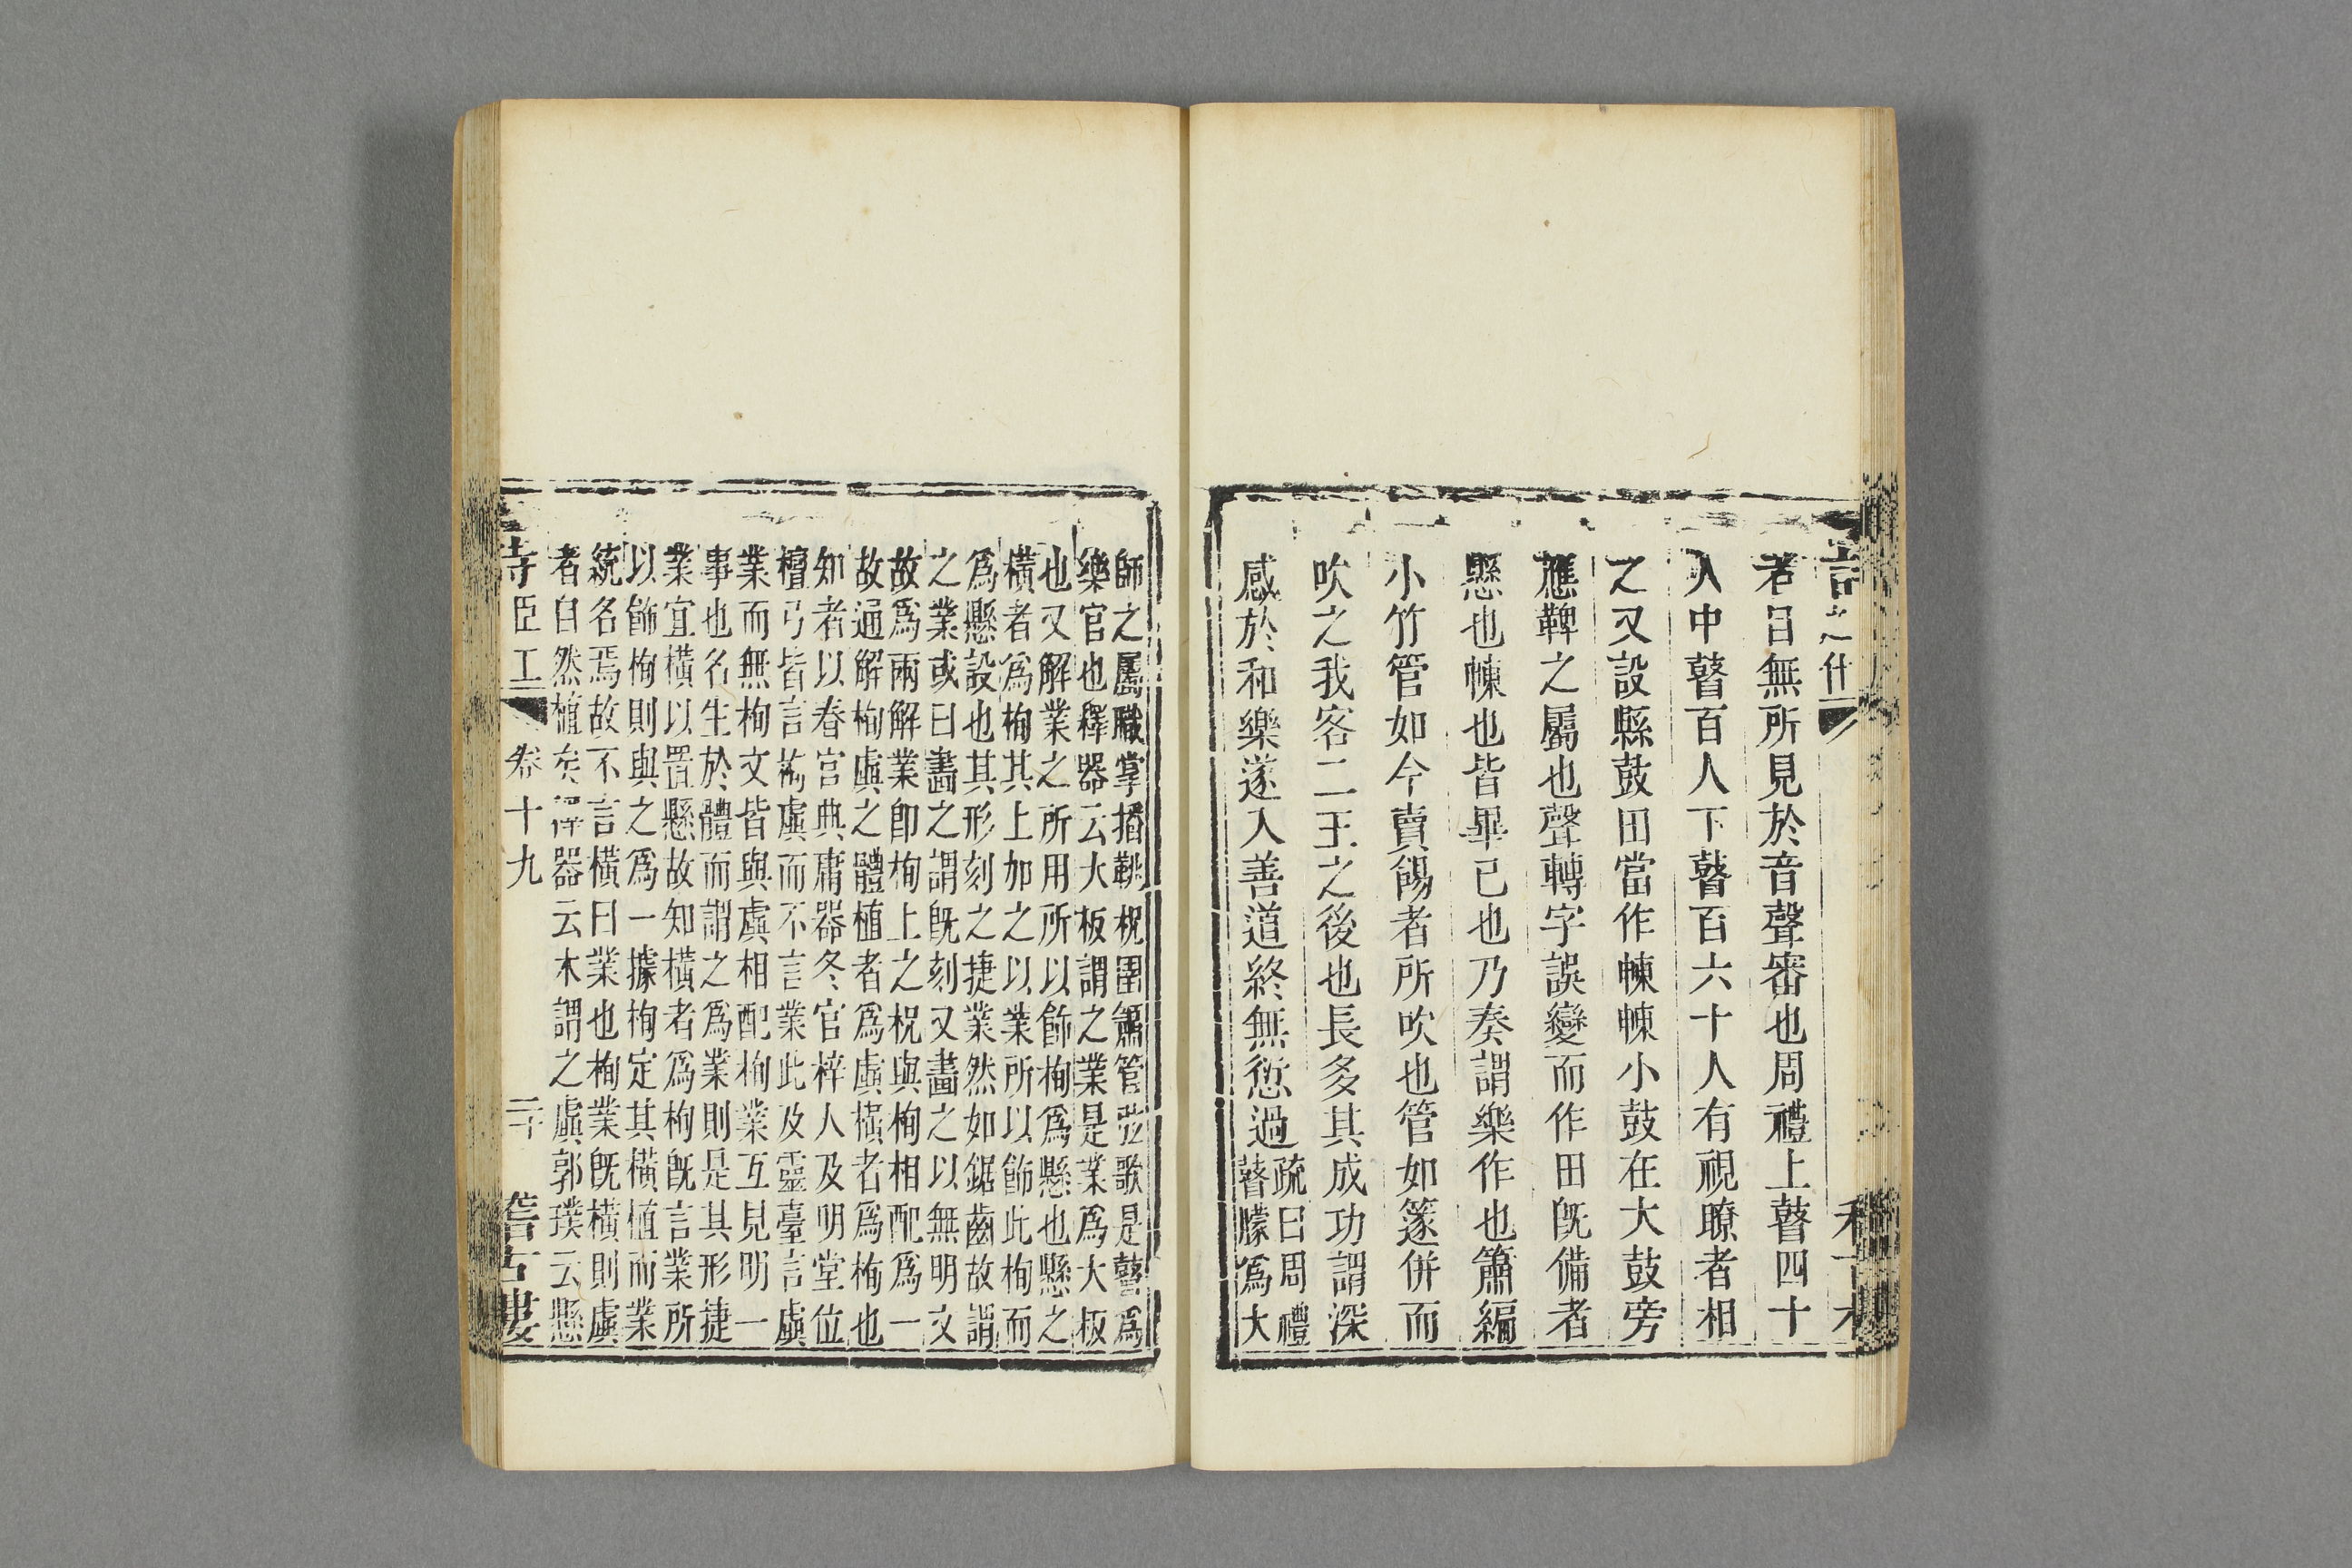 之什
者目無所見於音聲審也周禮上瞽四十
人中瞽百人下瞽百六十人有視瞭者相
之又設縣鼓田當作朄朄小鼓在大鼓旁
應鞞之屬也聲轉字誤變而作田既備者
懸也朄也皆畢已也乃奏謂樂作也簫編
小竹管如今賣餳者所吹也管如篴併而
吹之我客二王之後也長多其成功謂深
感於和樂遂入善道終無愆過
疏曰周禮
瞽矇為大
師之屬職掌播鞉柷圉簫管弦歌是瞽為
樂官也釋器云大板謂之業是業為大板
也又解業之所用所以飾栒為懸也懸之
橫者為栒其上加之以業所以飾此栒而
為懸設也其形刻之捷業然如鋸齒故謂
之業或曰畫之謂既刻又畫之以無明文
故為兩解業即栒上之柷與栒相配為一
故通解栒虡之體植者為虡橫者為栒也
知者以春官典庸器冬官梓人及明堂位
檀弓皆言栒虡而不言業此及靈臺言虡
業而無栒文皆與虡相配栒業互見明一
事也名生於體而謂之為業則是其形捷
業宜橫以置懸故知橫者為栒既言業所
以飾栒則與之為一據栒定其橫植而業
統名焉故不言橫曰業也栒業既橫則虡
者自然植矣釋器云木謂之虡郭璞云懸
詩臣工 卷十九 二十 稽古樓